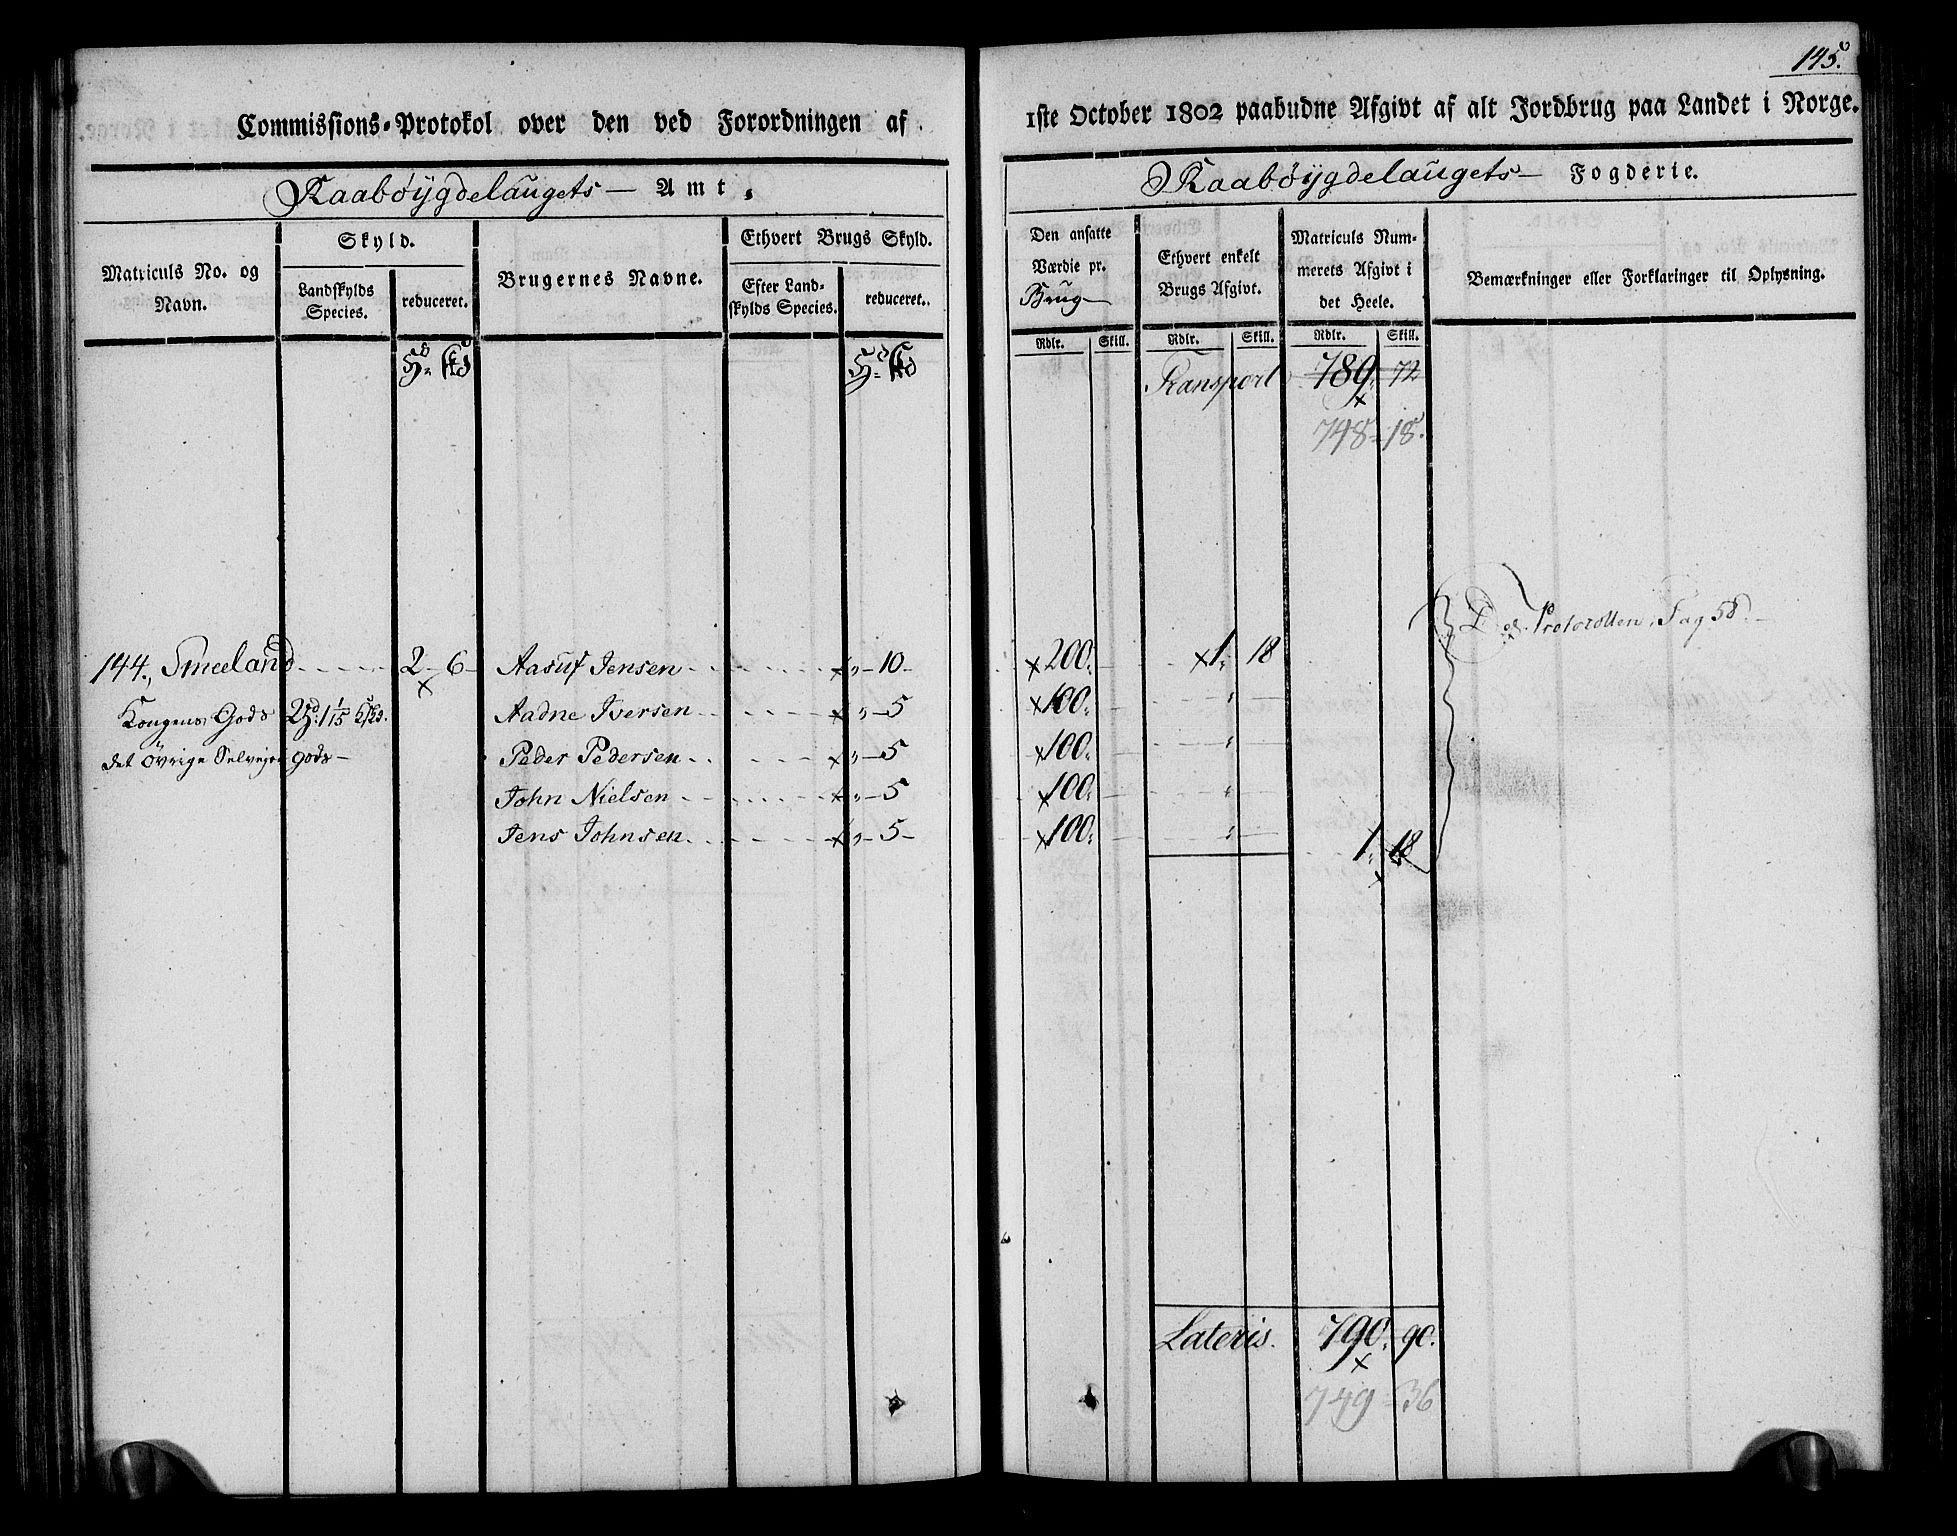 145.
Commissions-Protokol over den ved Forordningen af
1ste October 1802 paabudne Afgivt af alt Jordbrug paa Landet i Norge.
Raabøygdelaugets — Amt.
Raabøygdelaugets — Fogderie.
Matriculs No. og Navn.
Skyld.
Landskylds Species.
reduceret.
Brugernes Navne.
Ethvert Brugs Skyld.
Efter Landskylds Species.
reduceret.
Den ansatte Værdie pr. Brug
Ethvert enkelt Brugs Afgivt.
Matriculs Nummerets Afgivt i det Heele.
Bemærkninger eller Forklaringer til Oplysning.
Rdlr. Skill. Rdlr. Skill. Rdlr. Skill.
Transport 789. 72
748 - 18.
Protocollen, Pag 58.
144., Smeeland 2 - 6 - Aasuf Jensen " - 10 - 200. 1. 18
Kongens Gods 1 1/15 Aadne Iversen " - 5 100. "
det övrige Selvejer gods — Peder Pedersen " - 5 100. "
John Nielsen " - 5 100. "
Jens Johnsen " - 5 - 100. "
1. 18
Lateris. 790. 90.
749 - 36